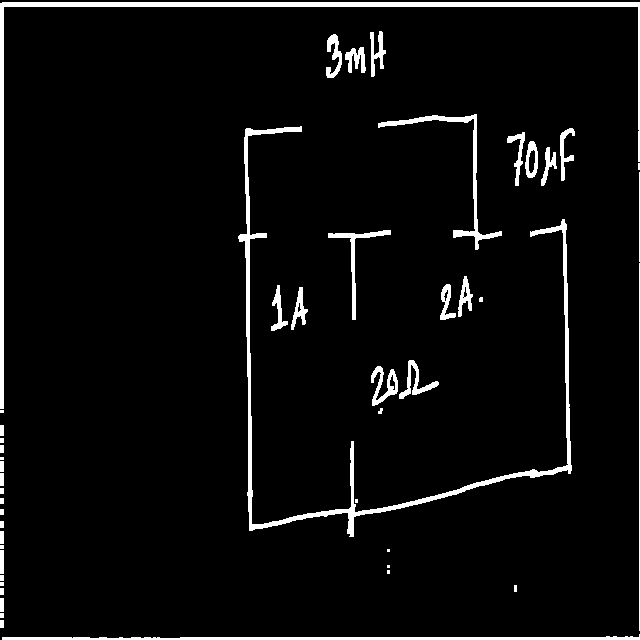 3mH
70µF
1A
2A.
20Ω